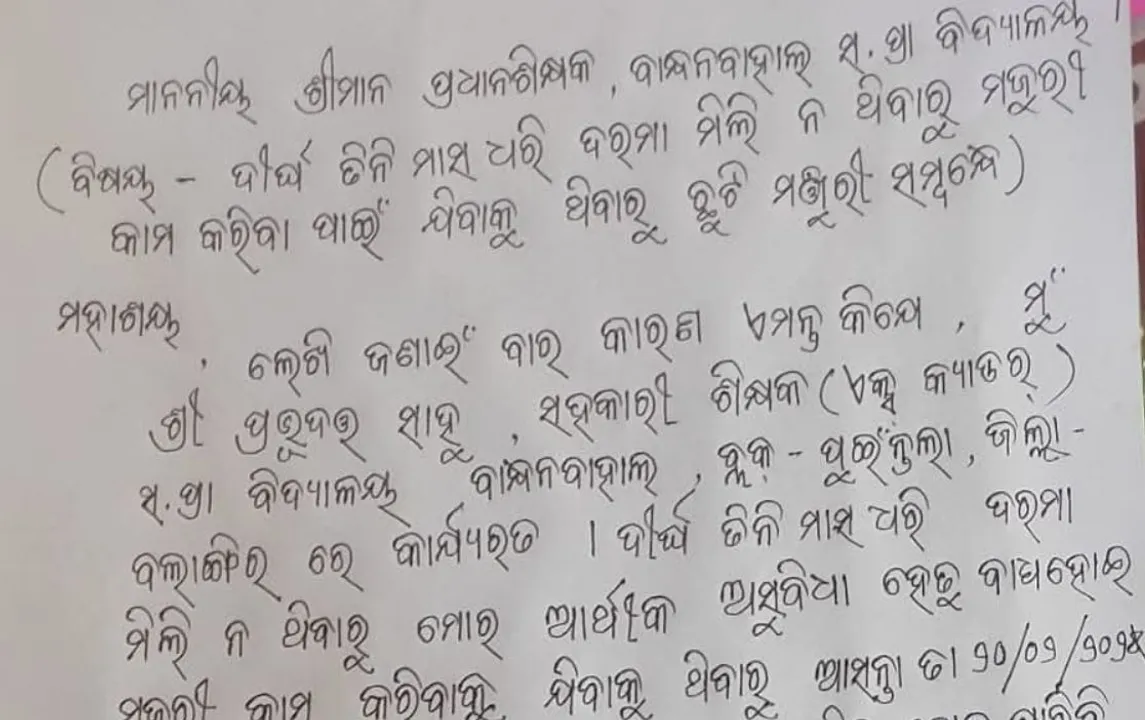 ମାନନୀୟ ଶ୍ରୀମାନ ପ୍ରଧାନଶିକ୍ଷକ, ବାନ୍ଧନବାହାଲ ସ.ପ୍ରା ବିଦ୍ୟାଳୟ ।
(ବିଷୟ - ଦୀର୍ଘ ତିନି ମାସ ଧରି ଦରମା ମିଳି ନ ଥିବାରୁ ମଜୁରୀ
କାମ କରିବା ପାଇଁ ଯିବାକୁ ଥିବାରୁ ଛୁଟି ମଞ୍ଜୁରୀ ସମ୍ବନ୍ଧେ)
ମହାଶୟ,
ଲେଖି ଜଣାଇଁ ବାର କାରଣ ଏମନ୍ତ କିଯେ, ମୁଁ
ଶ୍ରୀ ପ୍ରଭୁଦତ୍ତ ସାହୁ, ସହକାରୀ ଶିକ୍ଷକ (ଏକ୍ସ କ୍ୟାଡର୍)
ସ.ପ୍ରା ବିଦ୍ୟାଳୟ ବାନ୍ଧନବାହାଲ, ବ୍ଲକ୍ - ପୁଇଁନ୍ତଲା, ଜିଲ୍ଲା -
ବଲାଙ୍ଗିର ରେ କାର୍ଯ୍ୟରତ । ଦୀର୍ଘ ତିନି ମାସ ଧରି ଦରମା
ମିଳି ନ ଥିବାରୁ ମୋର ଆର୍ଥୀକ ଅସୁବିଧା ହେତୁ ବାଧହୋଇ
ମଜୁରୀ କାମ କରିବାକୁ ଯିବାକୁ ଥିବାରୁ ଆସନ୍ତା ତା